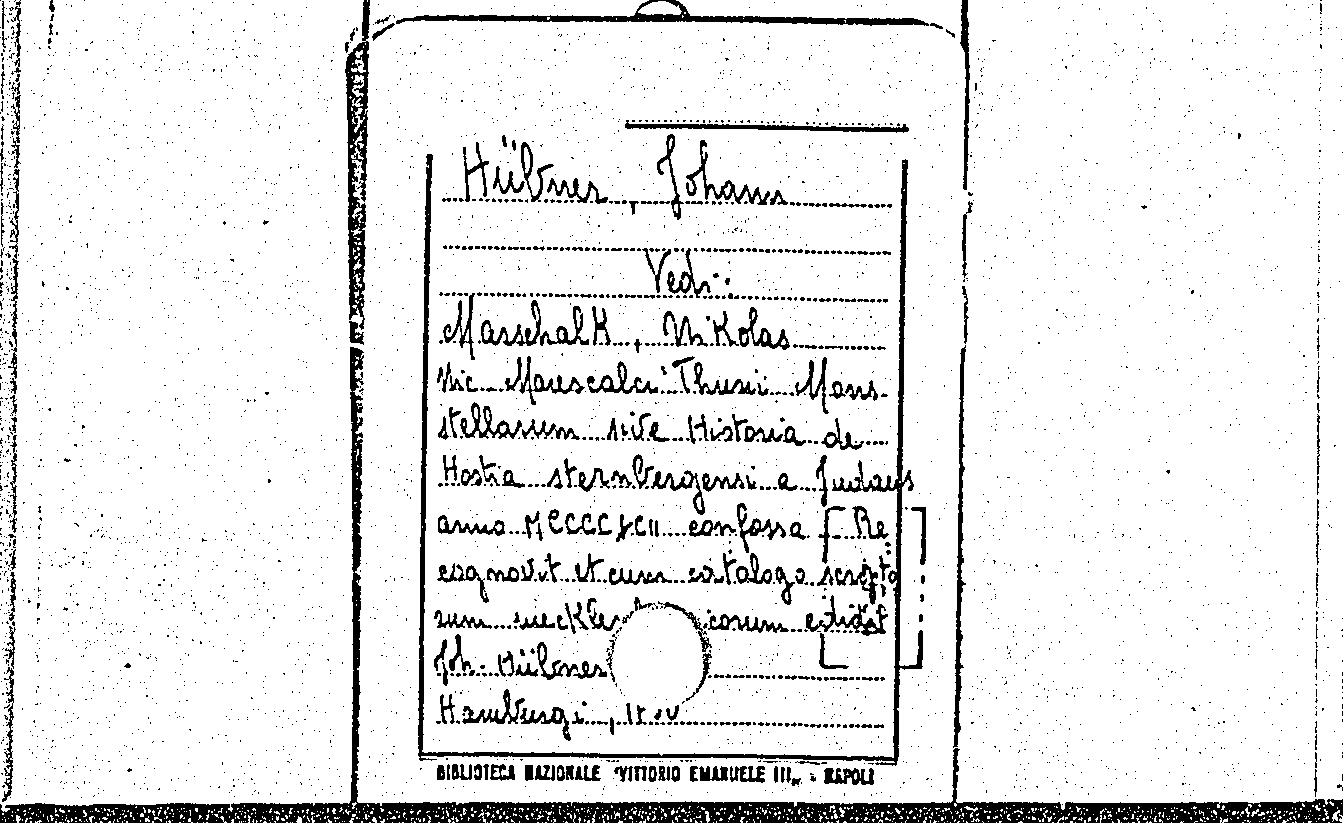 Hübner, Johann
Vedi:
Marschalk, Nikolas
Nic. Marescalci Thurii Mons
stellarum sive Historia de
Hostia sternbergensi a Judaeis
anno MCCCCXCII confossa [Re
cognovit et cum catalogo scripto
rum meckle corum edidit
Joh. Hübner
Hamburgi,
BIBLIOTECA NAZIONALE "VITTORIO EMANUELE III" - NAPOLI